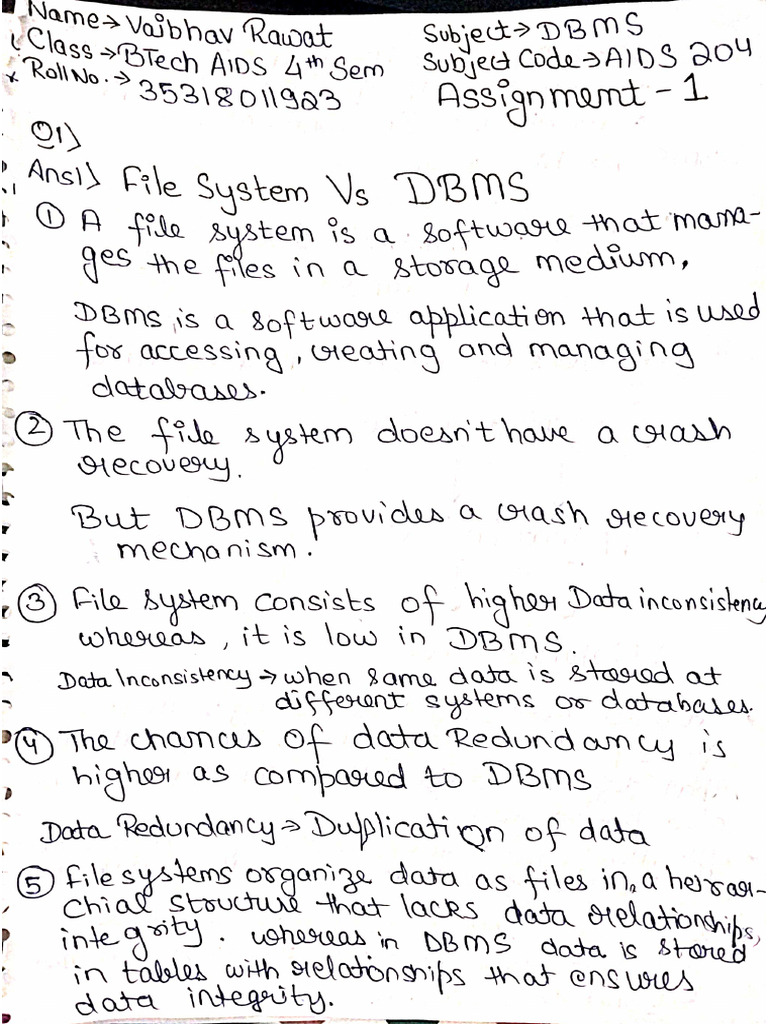 Name→ Vaibhav Rawat
Subject→ DBMS
Class→ BTech AIDS 4th Sem
Subject Code→ AIDS 204
Roll No.→ 35318011923
Assignment - 1
Q1)
Ans1) File System Vs DBMS
① A file system is a software that mana-
ges the files in a storage medium,
DBMS is a software application that is used
for accessing, creating and managing
databases.
② The file system doesn't have a crash
recovery.
But DBMS provides a crash recovery
mechanism.
③ File system consists of higher Data inconsistency
whereas, it is low in DBMS.
Data Inconsistency → when same data is stored at
different systems or databases.
④ The chances of data Redundancy is
higher as compared to DBMS
Data Redundancy → Duplication of data
⑤ File systems organize data as files in a herrar-
chial structure that lacks data relationships,
integrity. whereas in DBMS data is stored
in tables with relationships that ensures
data integrity.